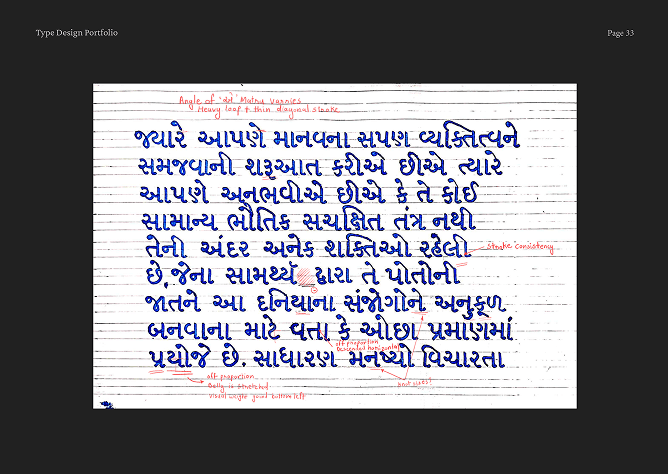 Type Design Portfolio
Page 33
Angle of 'એ' Matra varries
Heavy loop & thin diagonal stroke
જ્યારે આપણે માનવના સપણ વ્યક્તિત્વને
સમજવાની શરૂઆત કરીએ છીએ ત્યારે
આપણે અનભવીએ છીએ કે તે કોઈ
સામાન્ય ભૌતિક સચક્ષિત તંત્ર નથી
તેની અંદર અનેક શક્તિઓ રહેલી
stroke consistency
છે,જેના સામર્થ્ય દ્વારા તે પોતોની
જાતને આ દનિયાના સંજોગોને અનુકૂળ
બનવાના માટે વત્તા કે ઓછા પ્રમાણમાં
off proportion
Descended horizontal
પ્રયોજે છે. સાધારણ મનષ્યો વિચારતા
off proportion
Belly is stretched
visual weight going bottom left